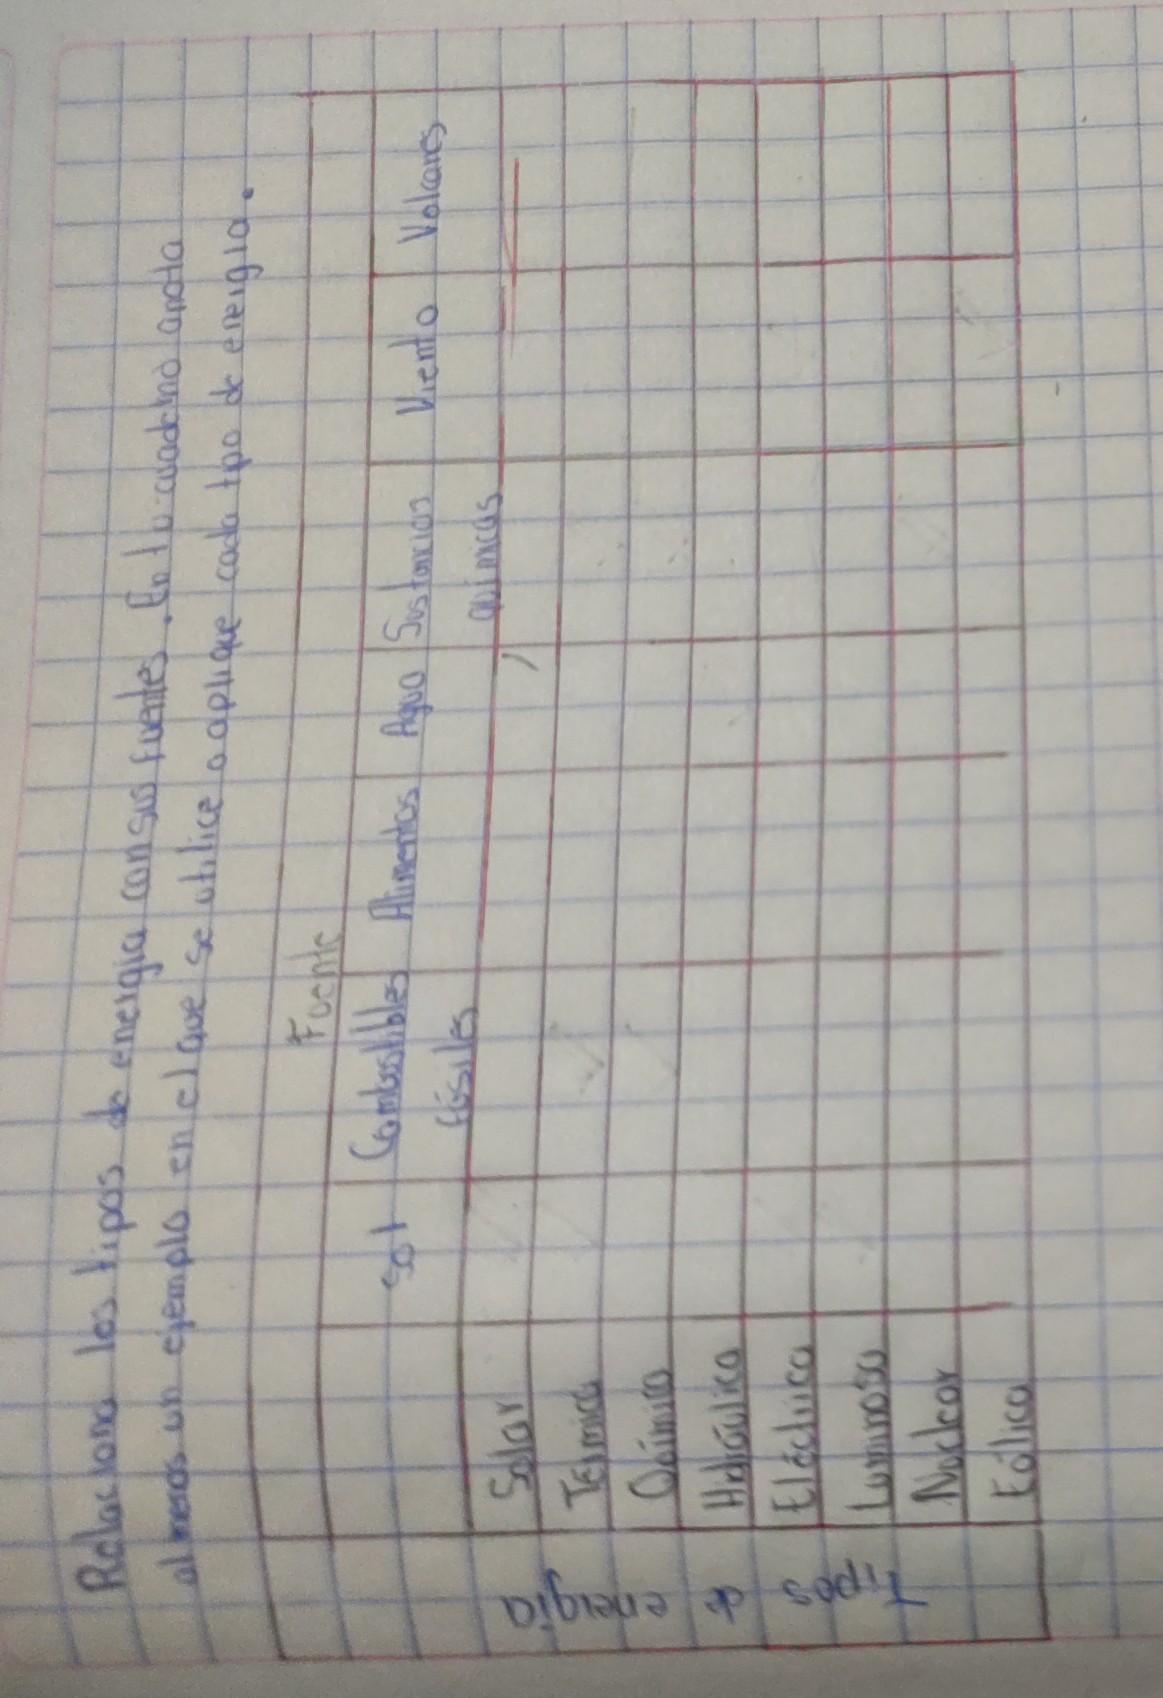 Relaciona los tipos de energia con sus fuentes. En tu cuaderno anota
al menos un ejemplo en el que se utilice o aplique cada tipo de energia.
Fuente
Sol Combustibles Alimentos Agua Sustancias Viento Volcanes
fósiles químicas
Tipos de energia
Solar
Térmica
Química
Hidráulica
Eléctrica
Luminosa
Nuclear
Eólica